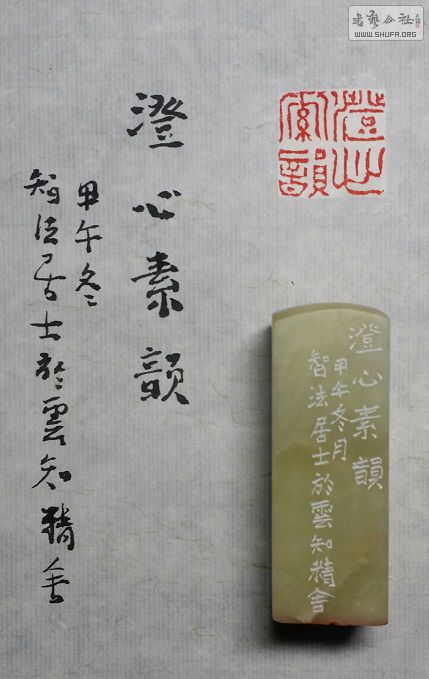 書艺公社
WWW.SHUFA.ORG
澄心素韻
澄心素韻
甲午冬
智法居士於雲知精舍
澄心素韻
甲午冬月
智法居士於雲知精舍